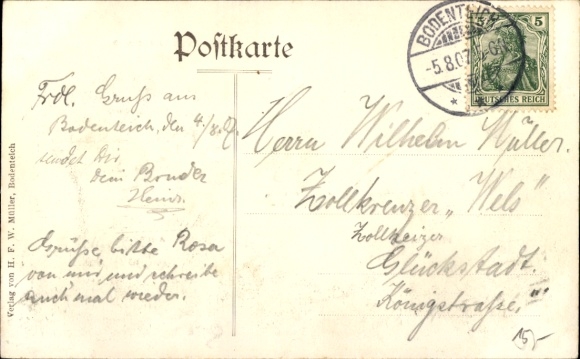 Postkarte
BODENTEICH
-5.8.07
5
5
DEUTSCHES REICH
Frdl. Gruss aus
Bodenteich, den 4/8.07
sendet dir
dein Bruder
Heinr.
Grüße, bitte Rosa
von mir, und schreibe
auch mal wieder.
Herrn Wilhelm Müller.
Zollkreuzer „Wels"
Zollheizer
Glückstadt.
Königstraße.
Verlag von H. F. W. Müller, Bodenteich
15,-